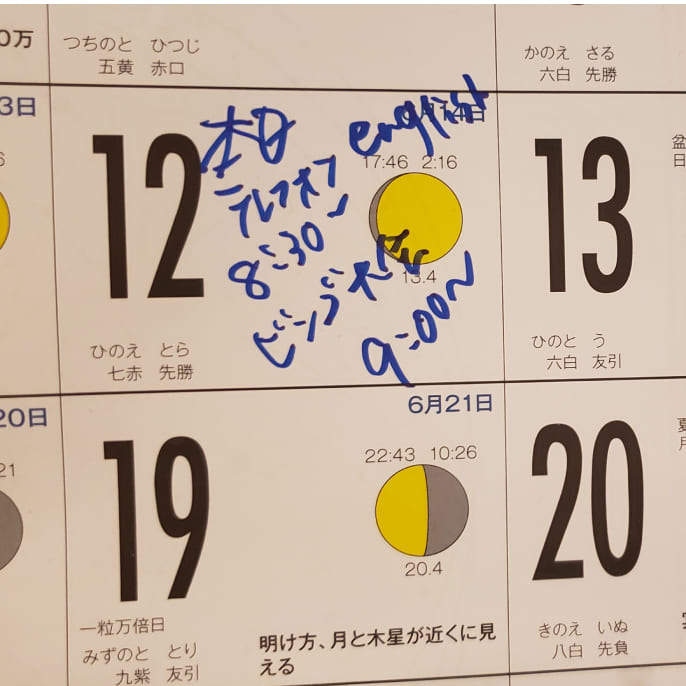 0万
つちのと ひつじ
五黄 赤口
かのえ さる
六白 先勝
3日
12
本日
english
17:46 2:16
8:30~
13.4
9:00~
ひのえ とら
七赤 先勝
13
盆
日
ひのと う
六白 友引
20日
21
19
6月21日
22:43 10:26
20.4
一粒万倍日
みずのと とり
九紫 友引
明け方、月と木星が近くに見
える
20
夏
月
きのえ いぬ
八白 先負